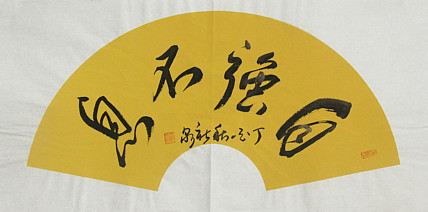 自強不息
丁亥秋